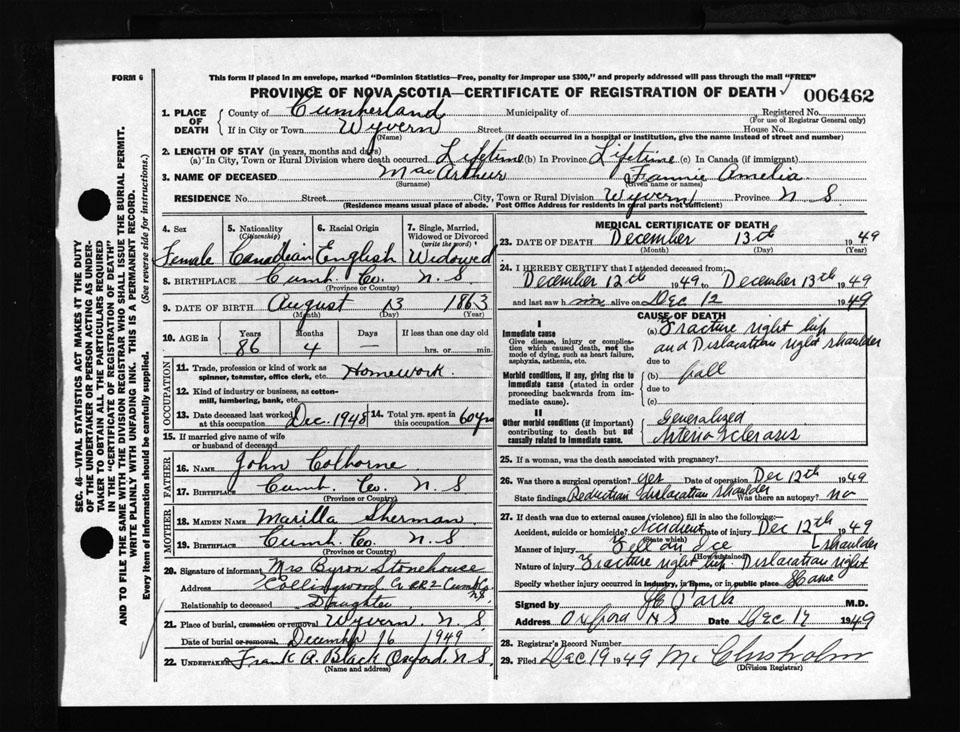 FORM 6
This form if placed in an envelope, marked "Dominion Statistics—Free, penalty for improper use $300," and properly addressed will pass through the mail "FREE"
PROVINCE OF NOVA SCOTIA—CERTIFICATE OF REGISTRATION OF DEATH
006462
1. PLACE OF DEATH
County of Cumberland Municipality of Registered No.
(For use of Registrar General only)
If in City or Town Wyvern Street House No.
(Name) (If death occurred in a hospital or institution, give the name instead of street and number)
2. LENGTH OF STAY (in years, months and days)
(a) In City, Town or Rural Division where death occurred Lifetime (b) In Province Lifetime (c) In Canada (if immigrant)
3. NAME OF DECEASED MacArthur Fannie Amelia
(Surname) (Given name or names)
RESIDENCE No. Street City, Town or Rural Division Wyvern Province N S.
(Residence means usual place of abode. Post Office Address for residents in rural parts not sufficient)
4. Sex 5. Nationality (Citizenship) 6. Racial Origin 7. Single, Married, Widowed or Divorced (write the word)
Female Canadian English Widowed
8. BIRTHPLACE Cumb. Co. N. S
(Province or Country)
9. DATE OF BIRTH August 13 1863
(Month) (Day) (Year)
10. AGE in Years Months Days If less than one day old
86 4 — hrs. or min.
OCCUPATION
11. Trade, profession or kind of work as spinner, teamster, office clerk, etc. Homework.
12. Kind of industry or business, as cotton-mill, lumbering, bank, etc.
13. Date deceased last worked at this occupation Dec. 1948 14. Total yrs. spent in this occupation 60 yrs
15. If married give name of wife or husband of deceased
FATHER
16. NAME John Colborne
17. BIRTHPLACE Cumb. Co. N. S
(Province or Country)
MOTHER
18. MAIDEN NAME Marilla Sherman
19. BIRTHPLACE Cumb. Co. N. S
(Province or Country)
20. Signature of informant Mrs Byron Stonehouse
Address Collingwood Cr RR2 Cumb Co. NS
Relationship to deceased Daughter
21. Place of burial, cremation or removal Wyvern N. S.
Date of burial or removal December 16 1949
22. UNDERTAKER Frank A. Black Oxford, N S.
(Name and address)
MEDICAL CERTIFICATE OF DEATH
23. DATE OF DEATH December 13th 1949
(Month) (Day)
24. I HEREBY CERTIFY that I attended deceased from:
December 12th 1949 to December 13th 1949
and last saw alive on Dec 12 1949
CAUSE OF DEATH
I
Immediate cause
Give disease, injury or complication which caused death, not the mode of dying, such as heart failure, asphyxia, asthenia, etc.
(a) Fracture right hip
and Dislocation right shoulder
due to
Morbid conditions, if any, giving rise to immediate cause (stated in order proceeding backwards from immediate cause).
(b) fall
due to
(c)
II
Other morbid conditions (if important) contributing to death but not causally related to immediate cause.
Generalized
Arterio Sclerosis
25. If a woman, was the death associated with pregnancy?
26. Was there a surgical operation? yes Date of operation Dec 12th 1949
State findings Reduction dislocation shoulder Was there an autopsy? no
27. If death was due to external causes (violence) fill in also the following:
Accident, suicide or homicide? Accident Date of injury Dec 12th 1949
(State which)
Manner of injury Fell on Ice
(How sustained)
Nature of injury Fracture right hip Dislocation right shoulder
Specify whether injury occurred in industry, in home, or in public place Home
Signed by M.D.
Address Oxford NS Date Dec 17 1949
28. Registrar's Record Number
29. Filed Dec 19 1949 M. Chisholm
(Division Registrar)
SEC. 46—VITAL STATISTICS ACT MAKES IT THE DUTY
OF THE UNDERTAKER OR PERSON ACTING AS UNDER-
TAKER TO OBTAIN ALL THE PARTICULARS REQUIRED
IN THE "CERTIFICATE OF REGISTRATION OF DEATH"
AND TO FILE THE SAME WITH THE DIVISION REGISTRAR WHO SHALL ISSUE THE BURIAL PERMIT.
WRITE PLAINLY WITH UNFADING INK. THIS IS A PERMANENT RECORD.
Every item of information should be carefully supplied. (See reverse side for instructions.)